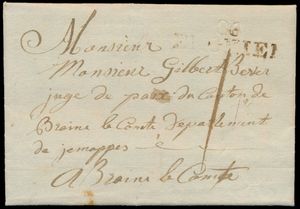 Monsieur
86
Monsieur Gilbert
juge de paix du Canton de
Braine le Comte Departement
de jemappes - è -
A Braine le Comte